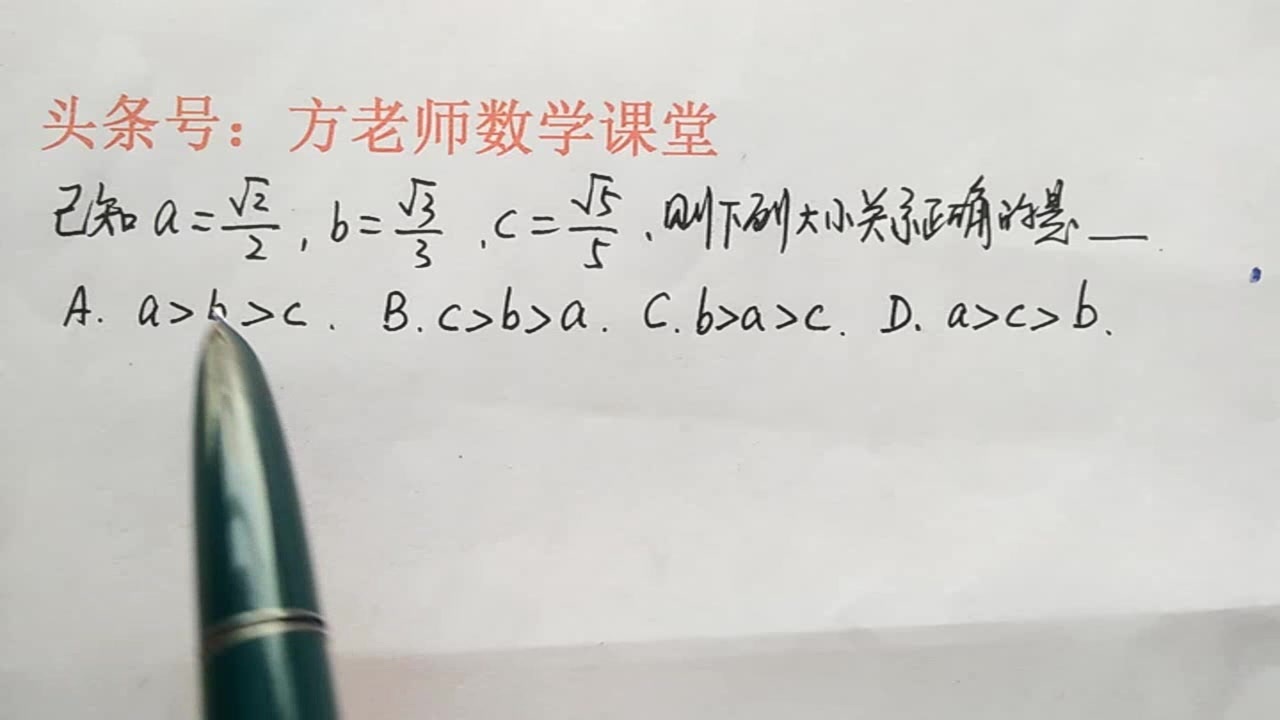 头条号：方老师数学课堂
已知 a=√2/2, b=√3/3, c=√5/5, 则下列大小关系正确的是 __
A. a>b>c. B. c>b>a. C. b>a>c. D. a>c>b.